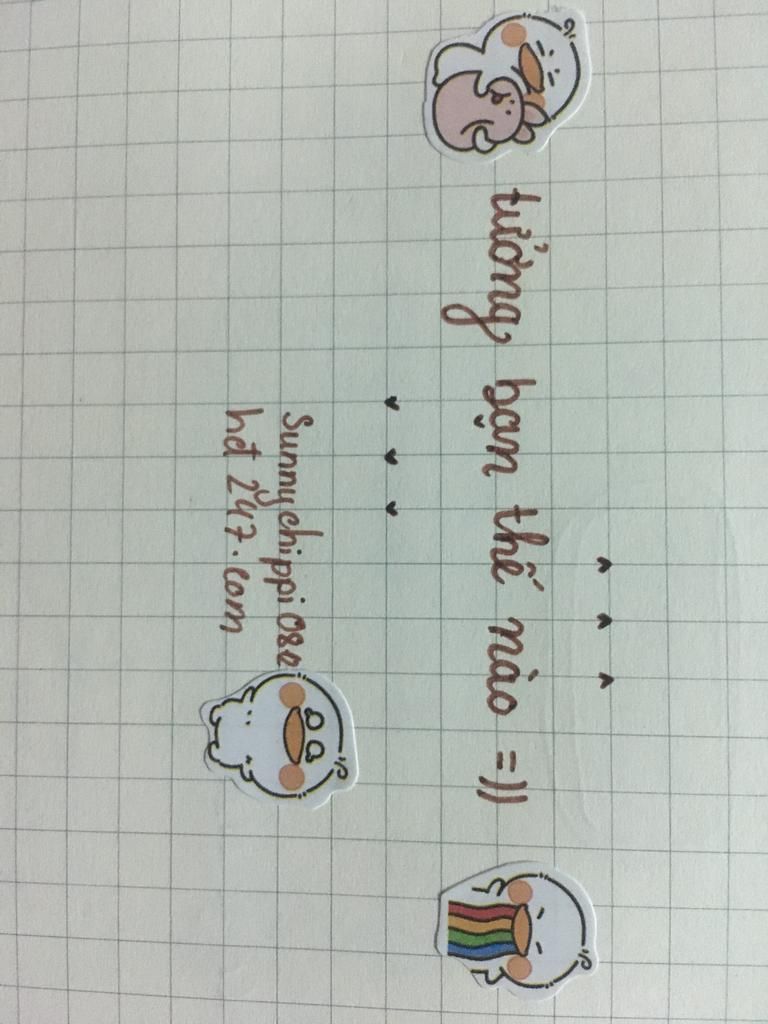 tưởng bạn thế nào =))
Sunnychippi080
hđ 247.com